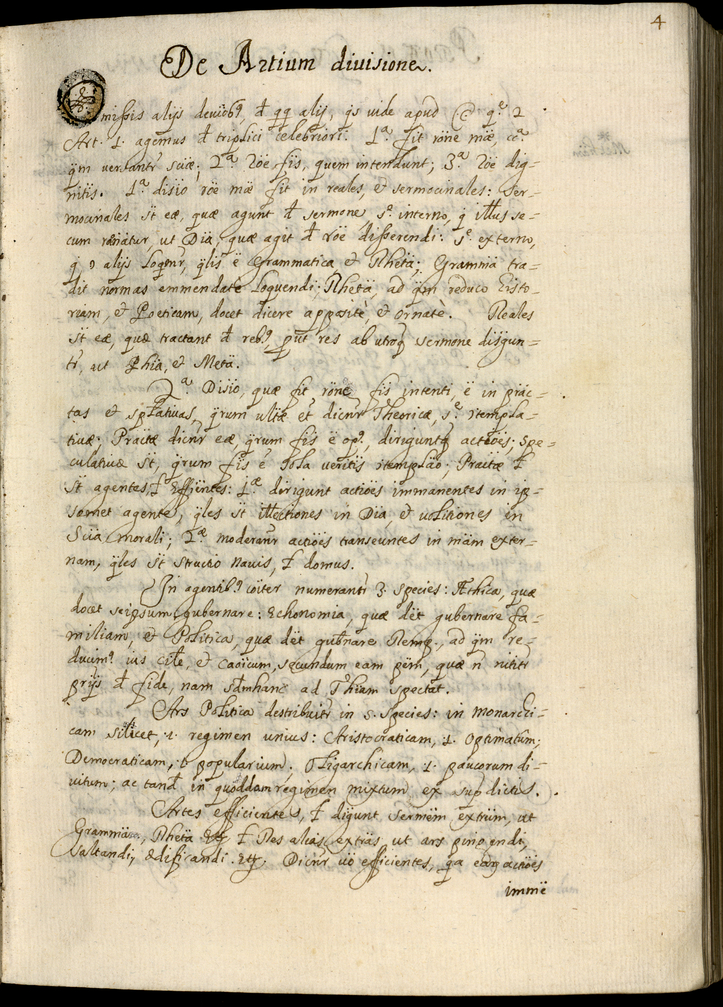 4
De Artium diuisione.
missis alijs deuisibꝰ, đ qq alij, qs vide apud q. 2
Art. 1. agemus đ triplici celebriori. 1.ª fit röne mæ, ca
qm versantr sciæ; 2.ª röe fis, quem intendunt; 3.ª röe dig-
nitis. 1.ª disio röe mæ fit in reales, et sermocinales: Ser-
mocinales st eæ, quæ agunt đ sermone s.ͤ interno, q̃ illus se-
cum rönatur, ut Dia; quæ agit đ röe disserendi: s.ͤ externo,
q̃ ɔ alijs loqmr, qlis ë Grammatica et Rheta; Gramma tra-
dit normas emmendate loquendi; Rheta ad qm reduco Histo-
riam, et Poeticam, docet dicere appositè, et ornatè. Reales
st eæ, quæ tractant đ rebꝰ, put res ab utroq sermone disjun-
tr, ut Phia, et Meta.
2.ª Disio, quæ fit röne fis intenti ë in prac-
tas et splatiuas, qrum ultæ et dicnr Theoricæ, s.ͤ ɔtempla-
tiuæ; Practæ dicnr eæ, qrum fis ë opꝰ, diriguntq actiöes; Spe-
culatiuæ st, qrum fis ë sola veritis ɔtemplao; Practæ ł
st agentes, ł Efficntes: 1.æ dirigunt actiöes immanentes in ip-
somet agente, qles st illectiones in Dia, et volitiones in
Scia morali; 2.æ moderanr actiöes transeuntes in mam exter-
nam, qles st structio nauis, ł domus.
In agentibꝰ cöiter numerantr 3. species: Æthica, quæ
docet seipsum gubernare: Echonomia, quæ dët gubernare fa-
miliam, et Politica, quæ dët gubnare Remp., ad qm re-
ducimꝰ ius ciłe, et caöicum, secundum eam ptm, quæ n nititr
prijs đ fide, nam sđmhanc ad Thiam spectat.
Ars Politica destribuitr in 5. species: in monarchi-
cam silicet, .i. regimen unius: Aristocraticam, .i. optimatum;
Democraticam, .i. popularium. Oligarchicam, .i. paucorum di-
uitum; ac tand in quoddam regimen mixtum ex supdictis.
Artes efficientes, ł dijunt sermëm extrüm, ut
Grammä, Rheta Etc̃ ł Res alias extras ut ars pingendi,
saltandi, ædificandi. Etc̃; Dicnr uö efficientes, qa earq actiöes
immë